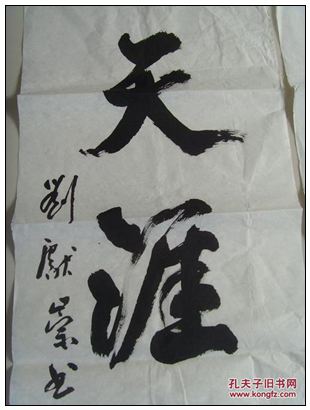 天涯
劉獻崇书
孔夫子旧书网
www.kongfz.com